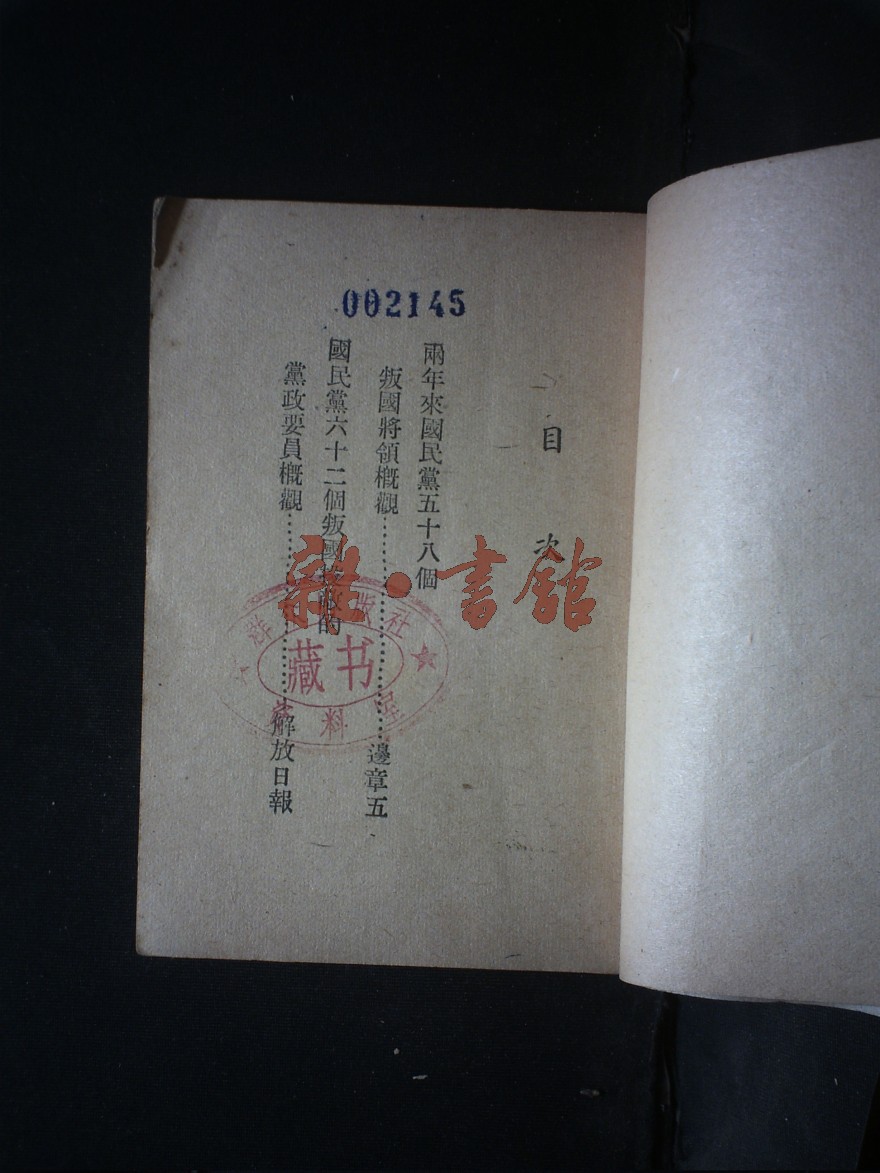 002145
目次
兩年來國民黨五十八個
叛國將領概觀……………………邊章五
國民黨六十二個叛國投敵的
黨政要員概觀……………………解放日報
雜·書館
群 版社
藏书
資料室